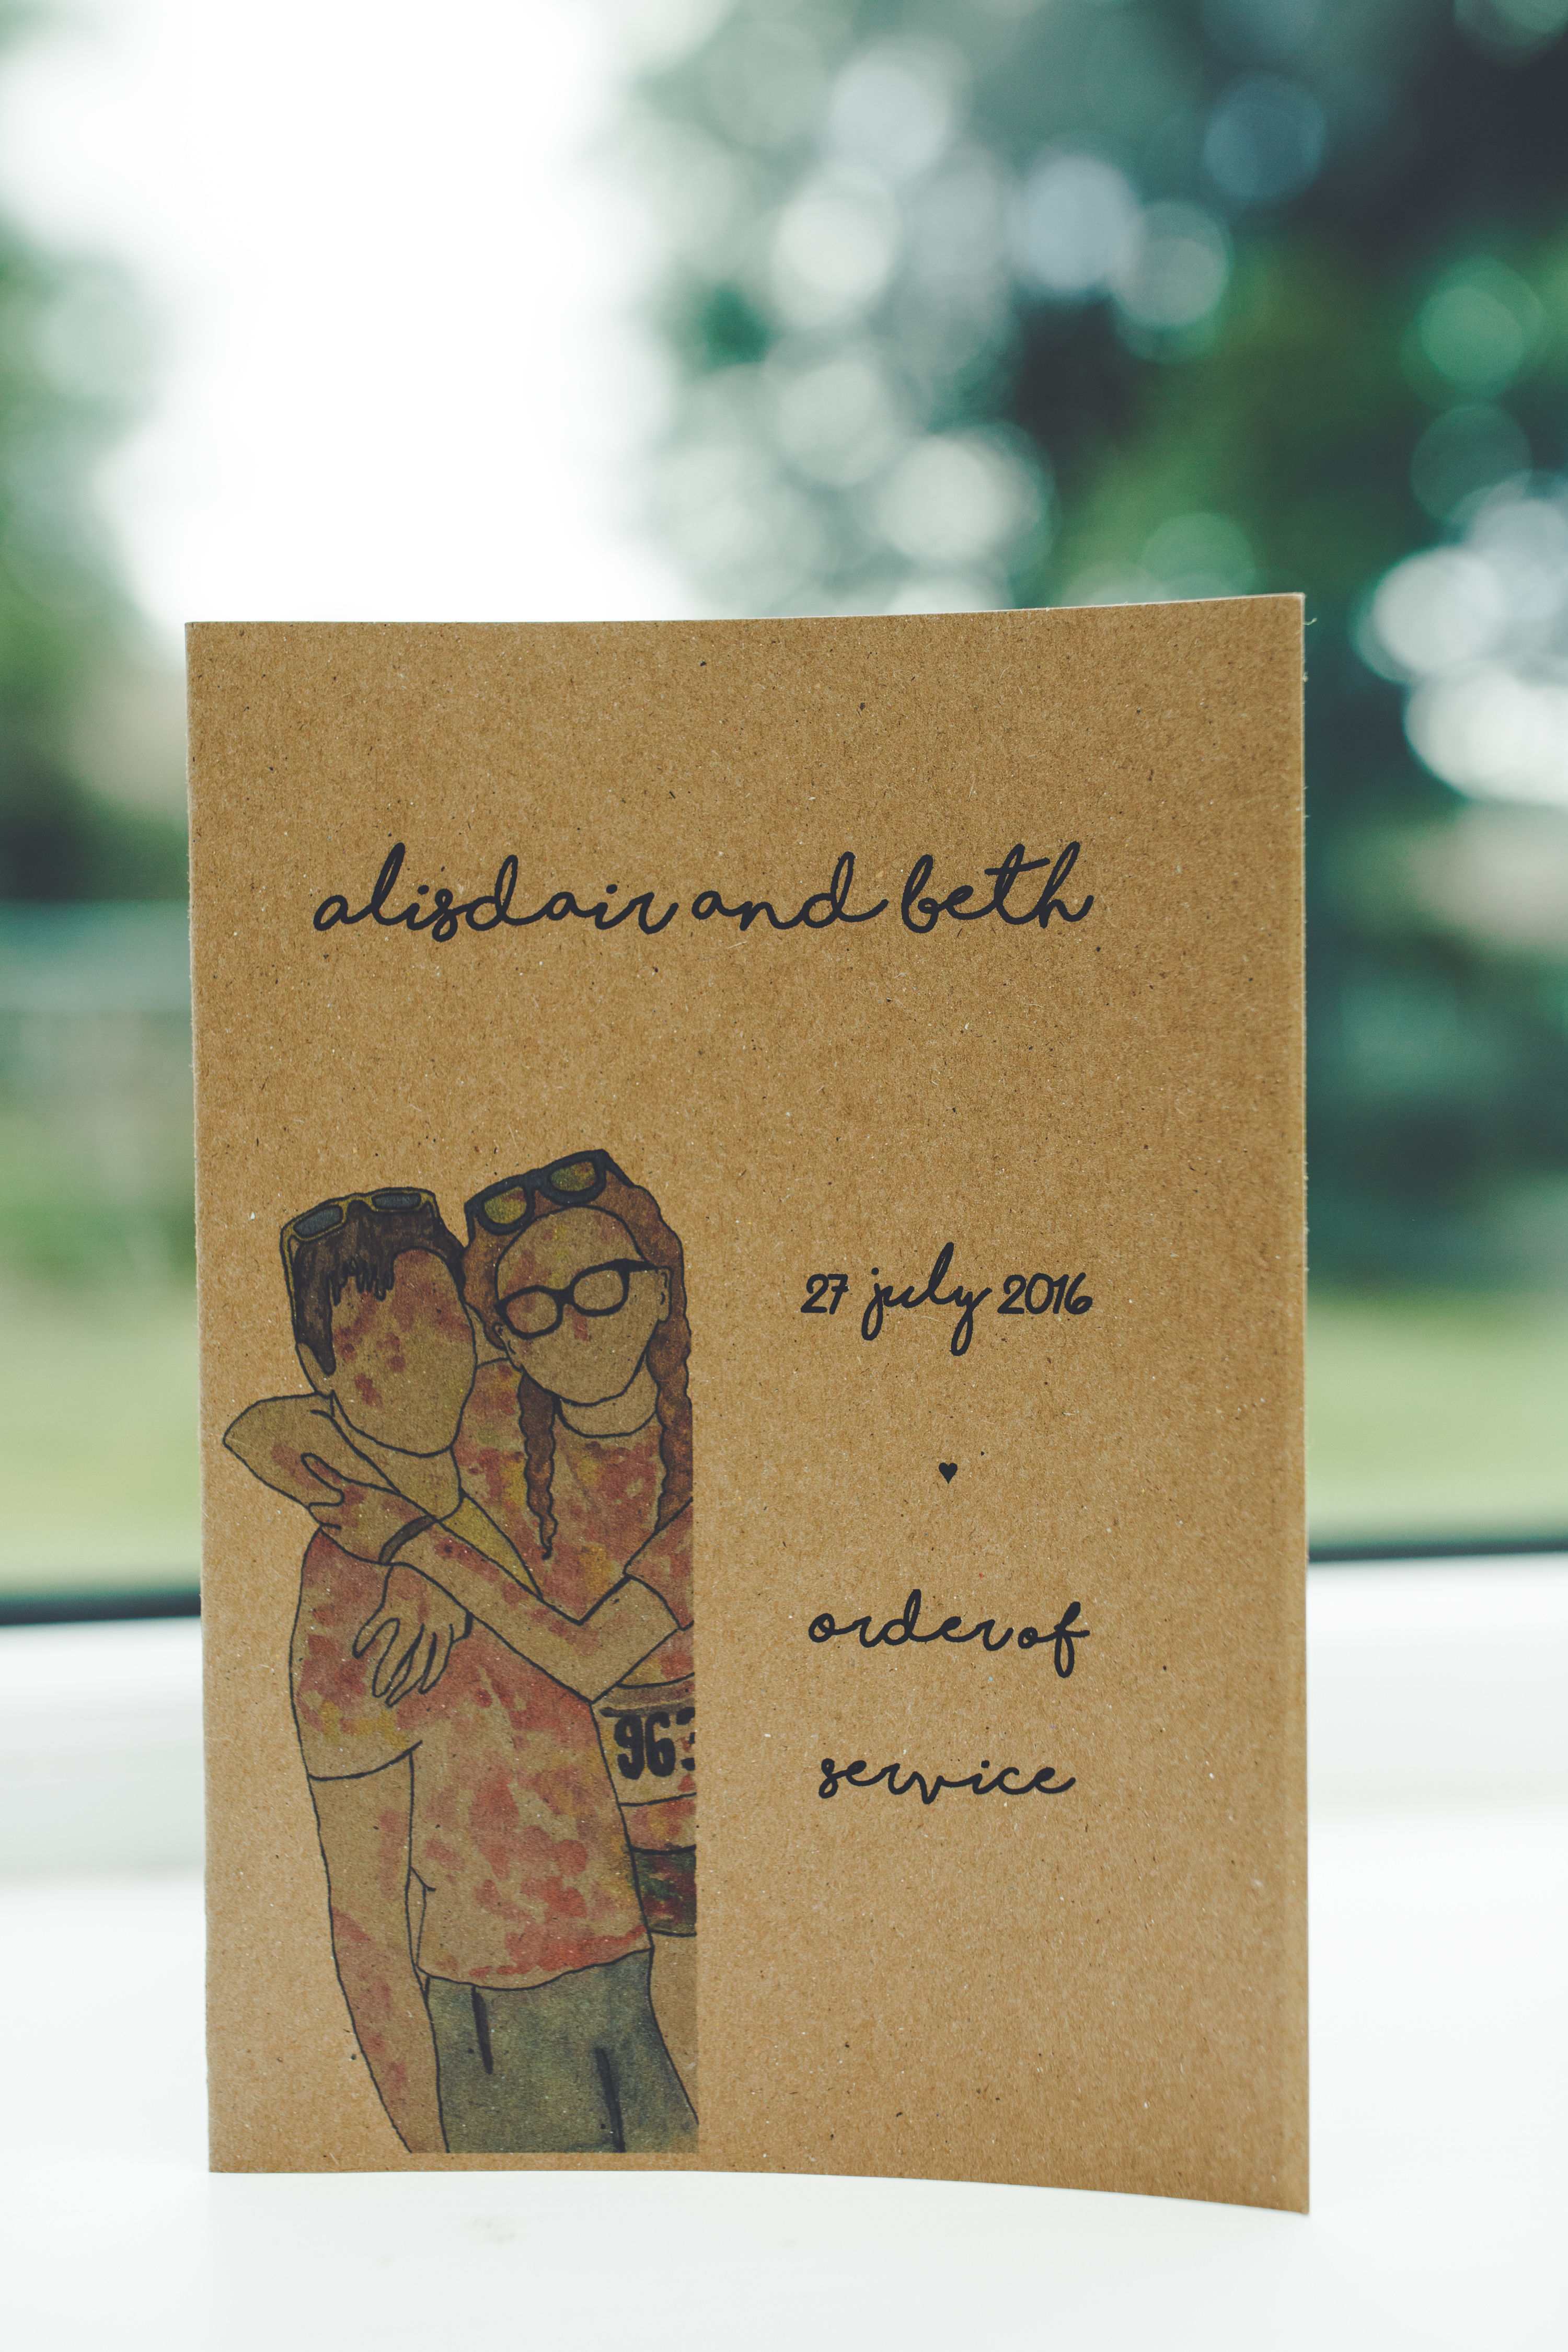 alisdair and beth
27 july 2016
♥
order of
service
963